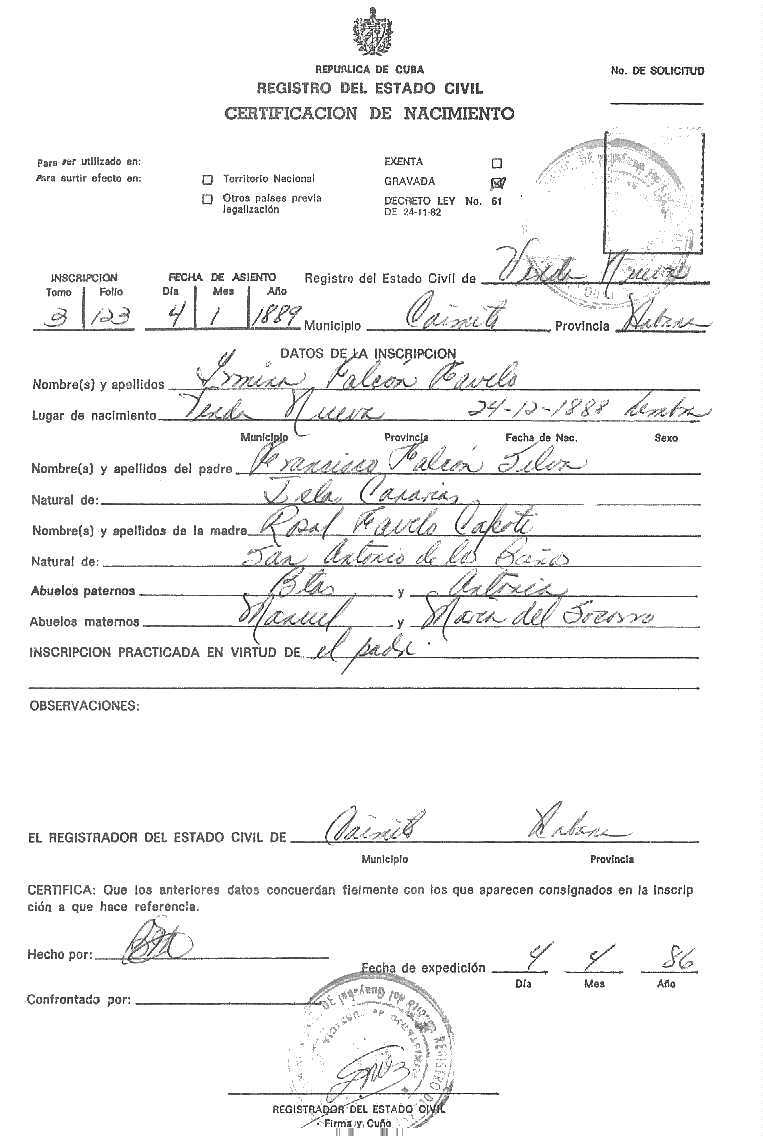 REPUBLICA DE CUBA
No. DE SOLICITUD
REGISTRO DEL ESTADO CIVIL
CERTIFICACION DE NACIMIENTO
Para ser utilizado en:
Para surtir efecto en:
Territorio Nacional
Otros países previa legalización
EXENTA
GRAVADA
DECRETO LEY No. 61
DE 24-11-82
INSCRIPCION FECHA DE ASIENTO Registro del Estado Civil de Vereda Nueva
Tomo Folio Día Mes Año
3 123 4 1 1889 Municipio Caimito Provincia Habana
DATOS DE LA INSCRIPCION
Nombre(s) y apellidos Falcón Favelo
Lugar de nacimiento Vereda Nueva 24-12-1888 hembra
Municipio Provincia Fecha de Nac. Sexo
Nombre(s) y apellidos del padre Francisco Falcón Silva
Natural de: Isla Canarias
Nombre(s) y apellidos de la madre Rosal Favelo Capote
Natural de: San Antonio de los Baños
Abuelos paternos Blas y Antonia
Abuelos maternos Manuel y María del Socorro
INSCRIPCION PRACTICADA EN VIRTUD DE el padre.
OBSERVACIONES:
EL REGISTRADOR DEL ESTADO CIVIL DE Caimito Habana
Municipio Provincia
CERTIFICA: Que los anteriores datos concuerdan fielmente con los que aparecen consignados en la inscrip
ción a que hace referencia.
Hecho por:
Fecha de expedición 4 4 86
Día Mes Año
Confrontado por:
REGISTRADOR DEL ESTADO CIVIL
Firma y Cuño